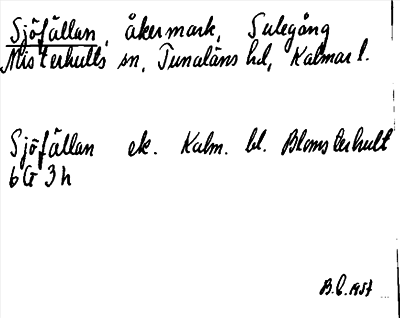 Sjöfällan, åkermark, Sulegång
Misterhults sn, Tunaläns hd, Kalmar l.
Sjöfällan ek. Kalm. bl. Blomsterhult
6G 3h
B.C. 1957